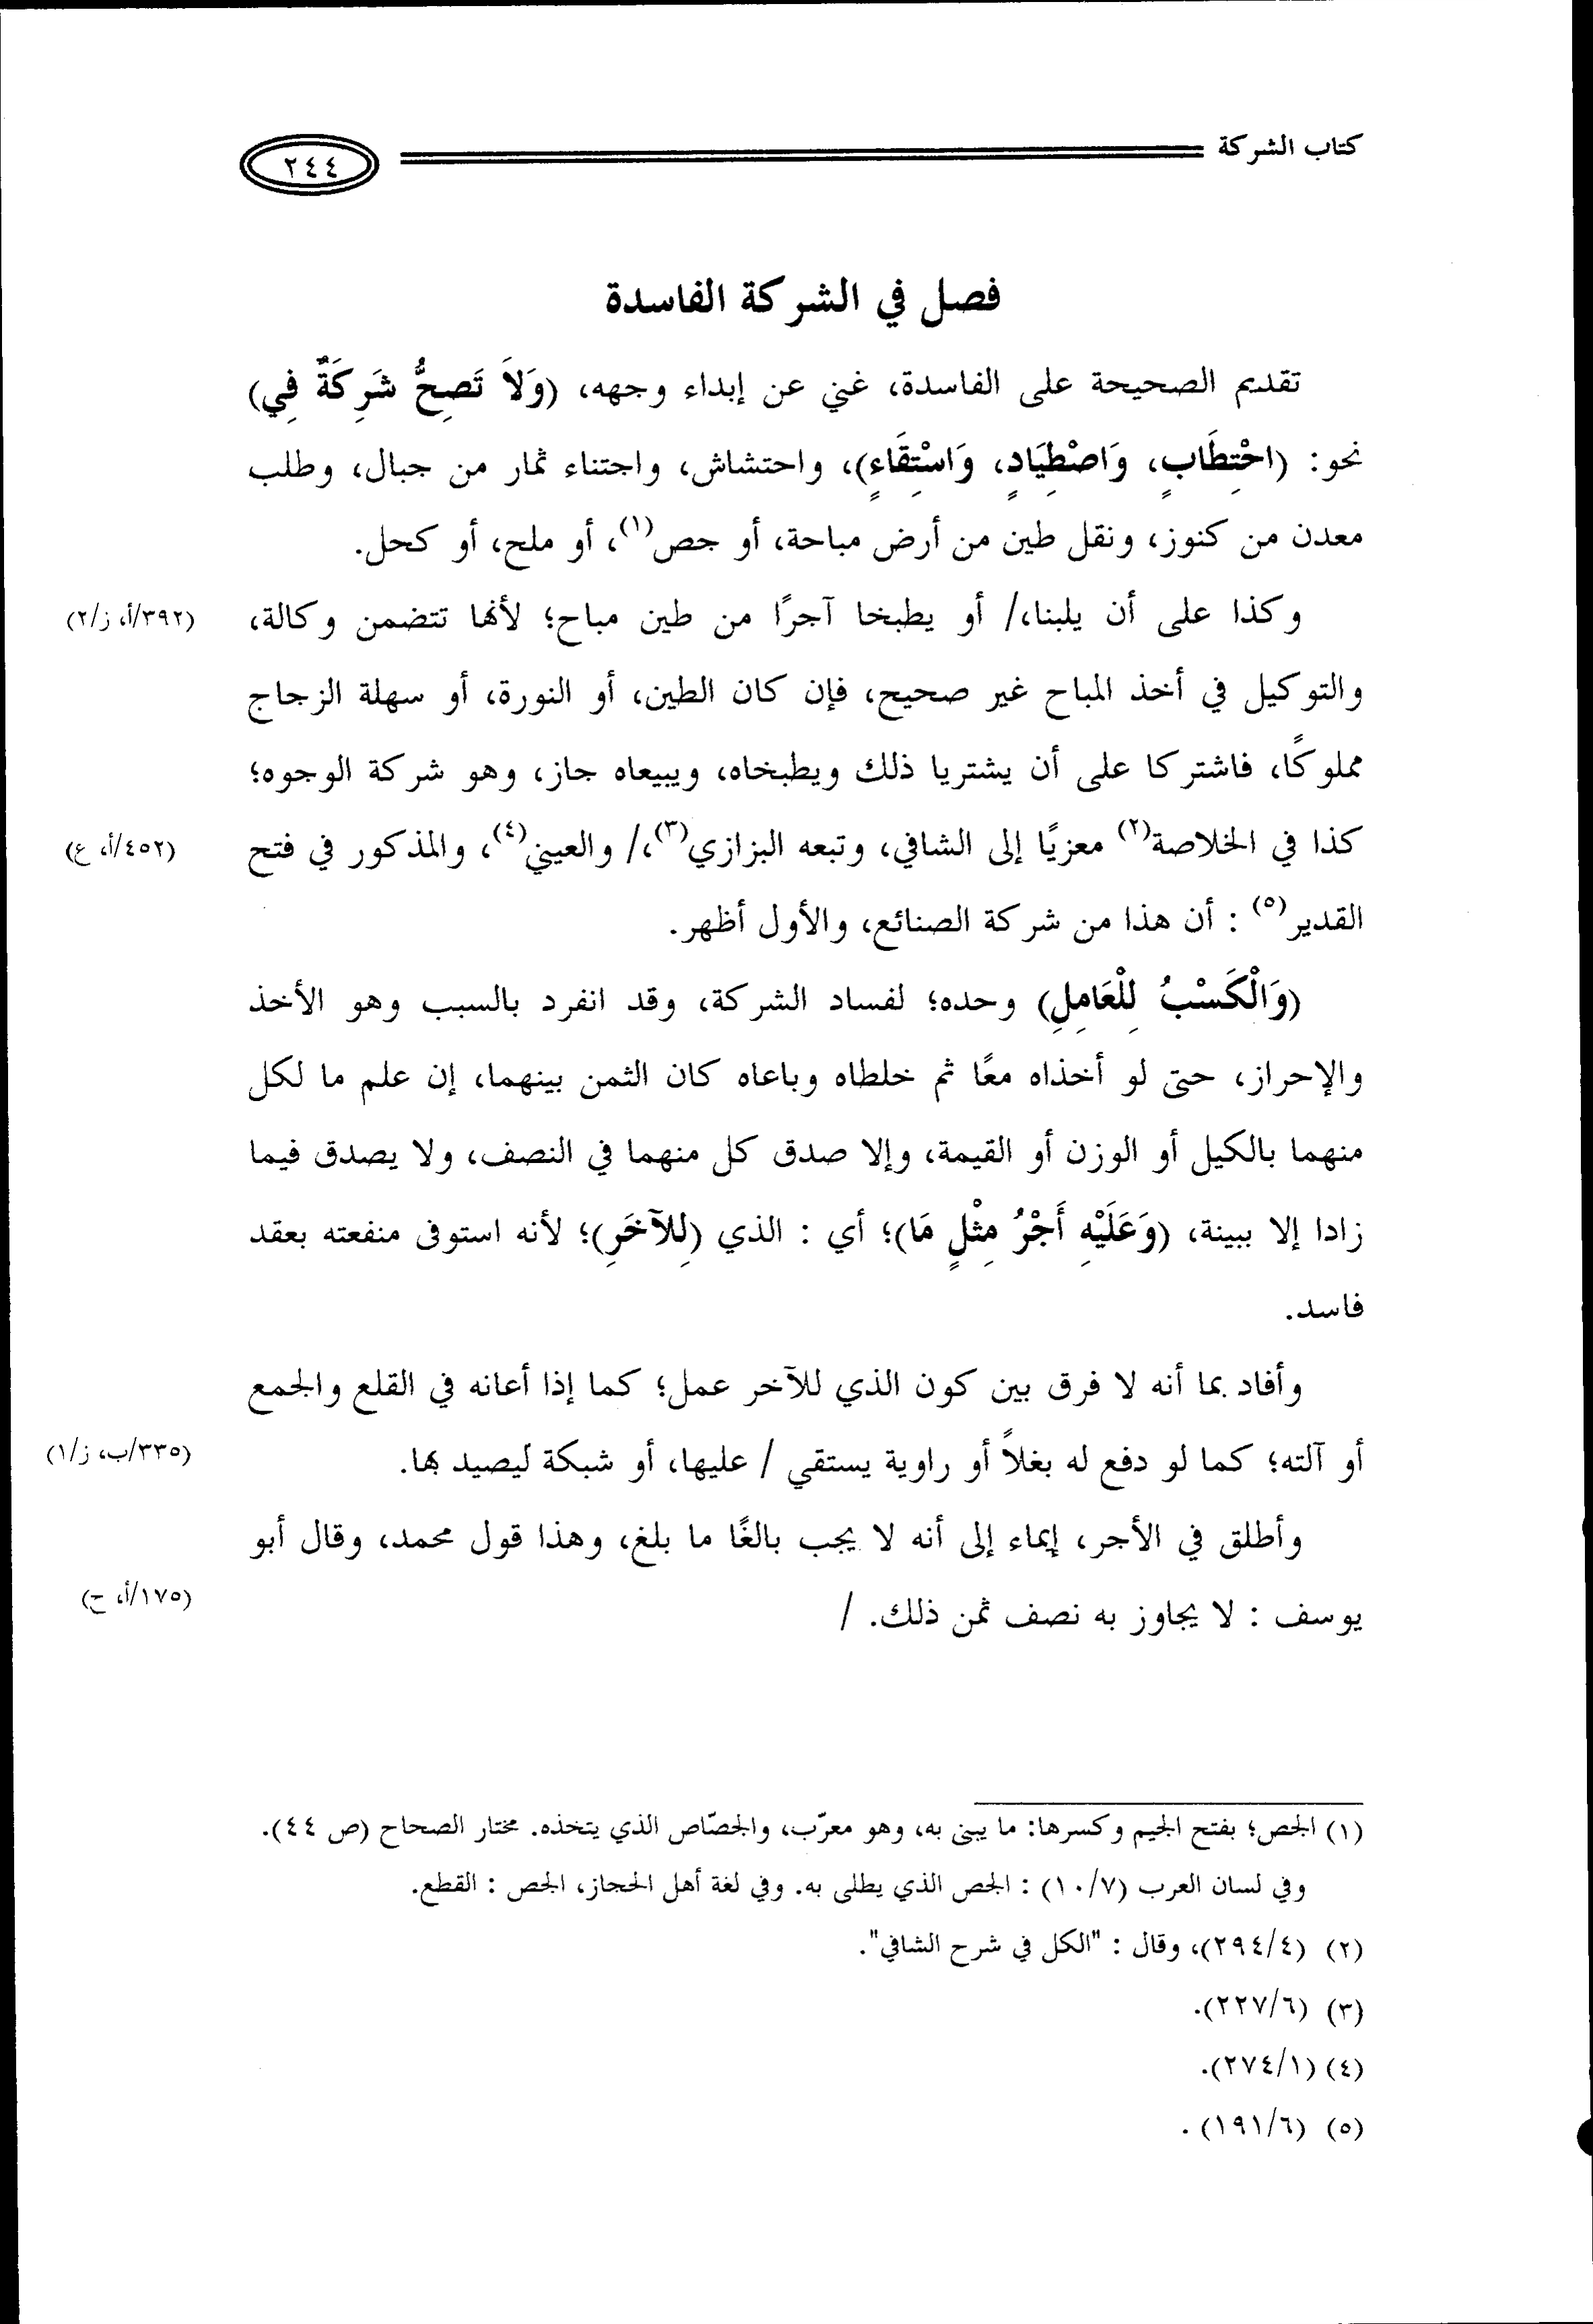 كتاب الشركة
٢٤٤
فصل في الشركة الفاسدة
تقديم الصحيحة على الفاسدة، غني عن إبداء وجهه، (وَلاَ تَصِحُّ شَرِكَةٌ فِي)
نحو: (احْتِطَابٍ، وَاصْطِيَادٍ، وَاسْتِقَاءٍ)، واحتشاش، واجتناء ثمار من جبال، وطلب
معدن من كنوز، ونقل طين من أرض مباحة، أو جص(١)، أو ملح، أو كحل.
وكذا على أن يلبنا،/ أو يطبخا آجرًا من طين مباح؛ لأنها تتضمن وكالة،
(٣٩٢/أ، ز/٢)
والتوكيل في أخذ المباح غير صحيح، فإن كان الطين، أو النورة، أو سهلة الزجاج
مملوكًا، فاشتركا على أن يشتريا ذلك ويطبخاه، ويبيعاه جاز، وهو شركة الوجوه؛
كذا في الخلاصة(٢) معزيًا إلى الشافي، وتبعه البزازي(٣)،/ والعيني(٤)، والمذكور في فتح
(٤٥٢/أ، ع)
القدير(٥) : أن هذا من شركة الصنائع، والأول أظهر.
(وَالْكَسْبُ لِلْعَامِلِ) وحده؛ لفساد الشركة، وقد انفرد بالسبب وهو الأخذ
والإحراز، حتى لو أخذاه معًا ثم خلطاه وباعاه كان الثمن بينهما، إن علم ما لكل
منهما بالكيل أو الوزن أو القيمة، وإلا صدق كل منهما في النصف، ولا يصدق فيما
زادا إلا ببينة، (وَعَلَيْهِ أَجْرُ مِثْلٍ مَا)؛ أي : الذي (لِلآخَرِ)؛ لأنه استوفى منفعته بعقد
فاسد.
وأفاد بما أنه لا فرق بين كون الذي للآخر عمل؛ كما إذا أعانه في القلع والجمع
أو آلته؛ كما لو دفع له بغلاً أو راوية يستقي / عليها، أو شبكة ليصيد بها.
(٣٣٥/ب، ز/١)
وأطلق في الأجر، إيماء إلى أنه لا يجب بالغًا ما بلغ، وهذا قول محمد، وقال أبو
يوسف : لا يجاوز به نصف ثمن ذلك. /
(١٧٥/أ، ح)
(١) الجص؛ بفتح الجيم وكسرها: ما يبنى به، وهو معرّب، والجصّاص الذي يتخذه. مختار الصحاح (ص ٤٤).
وفي لسان العرب (١٠/٧) : الجص الذي يطلى به. وفي لغة أهل الحجاز، الجص : القطع.
(٢) (٢٩٤/٤)، وقال : "الكل في شرح الشافي".
(٣) (٢٢٧/٦).
(٤) (٢٧٤/١).
(٥) (١٩١/٦) .